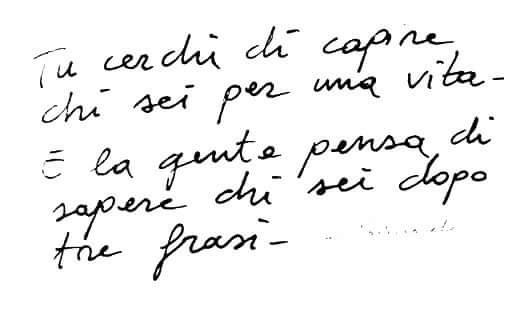 Tu cerchi di capire
chi sei per una vita-
E la gente pensa di
sapere chi sei dopo
tre frasi-